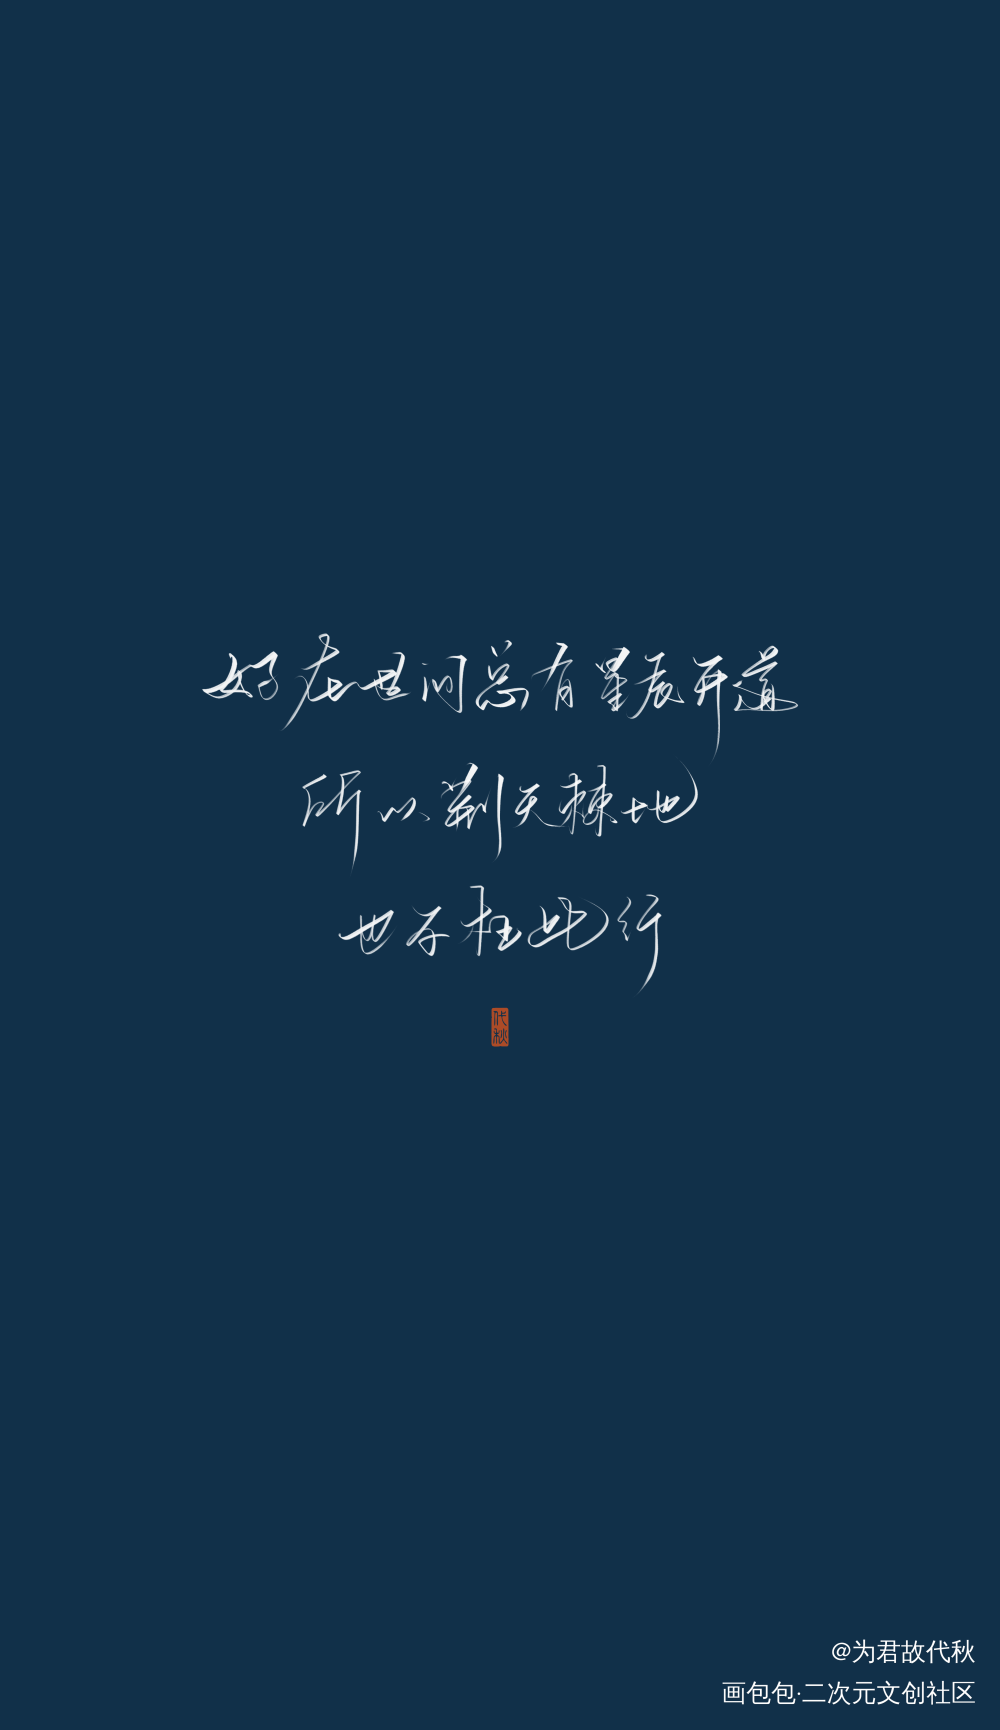 好在世间总有星辰开道
所以荆天棘地
也不枉此行
代秋
@为君故代秋
画包包·二次元文创社区